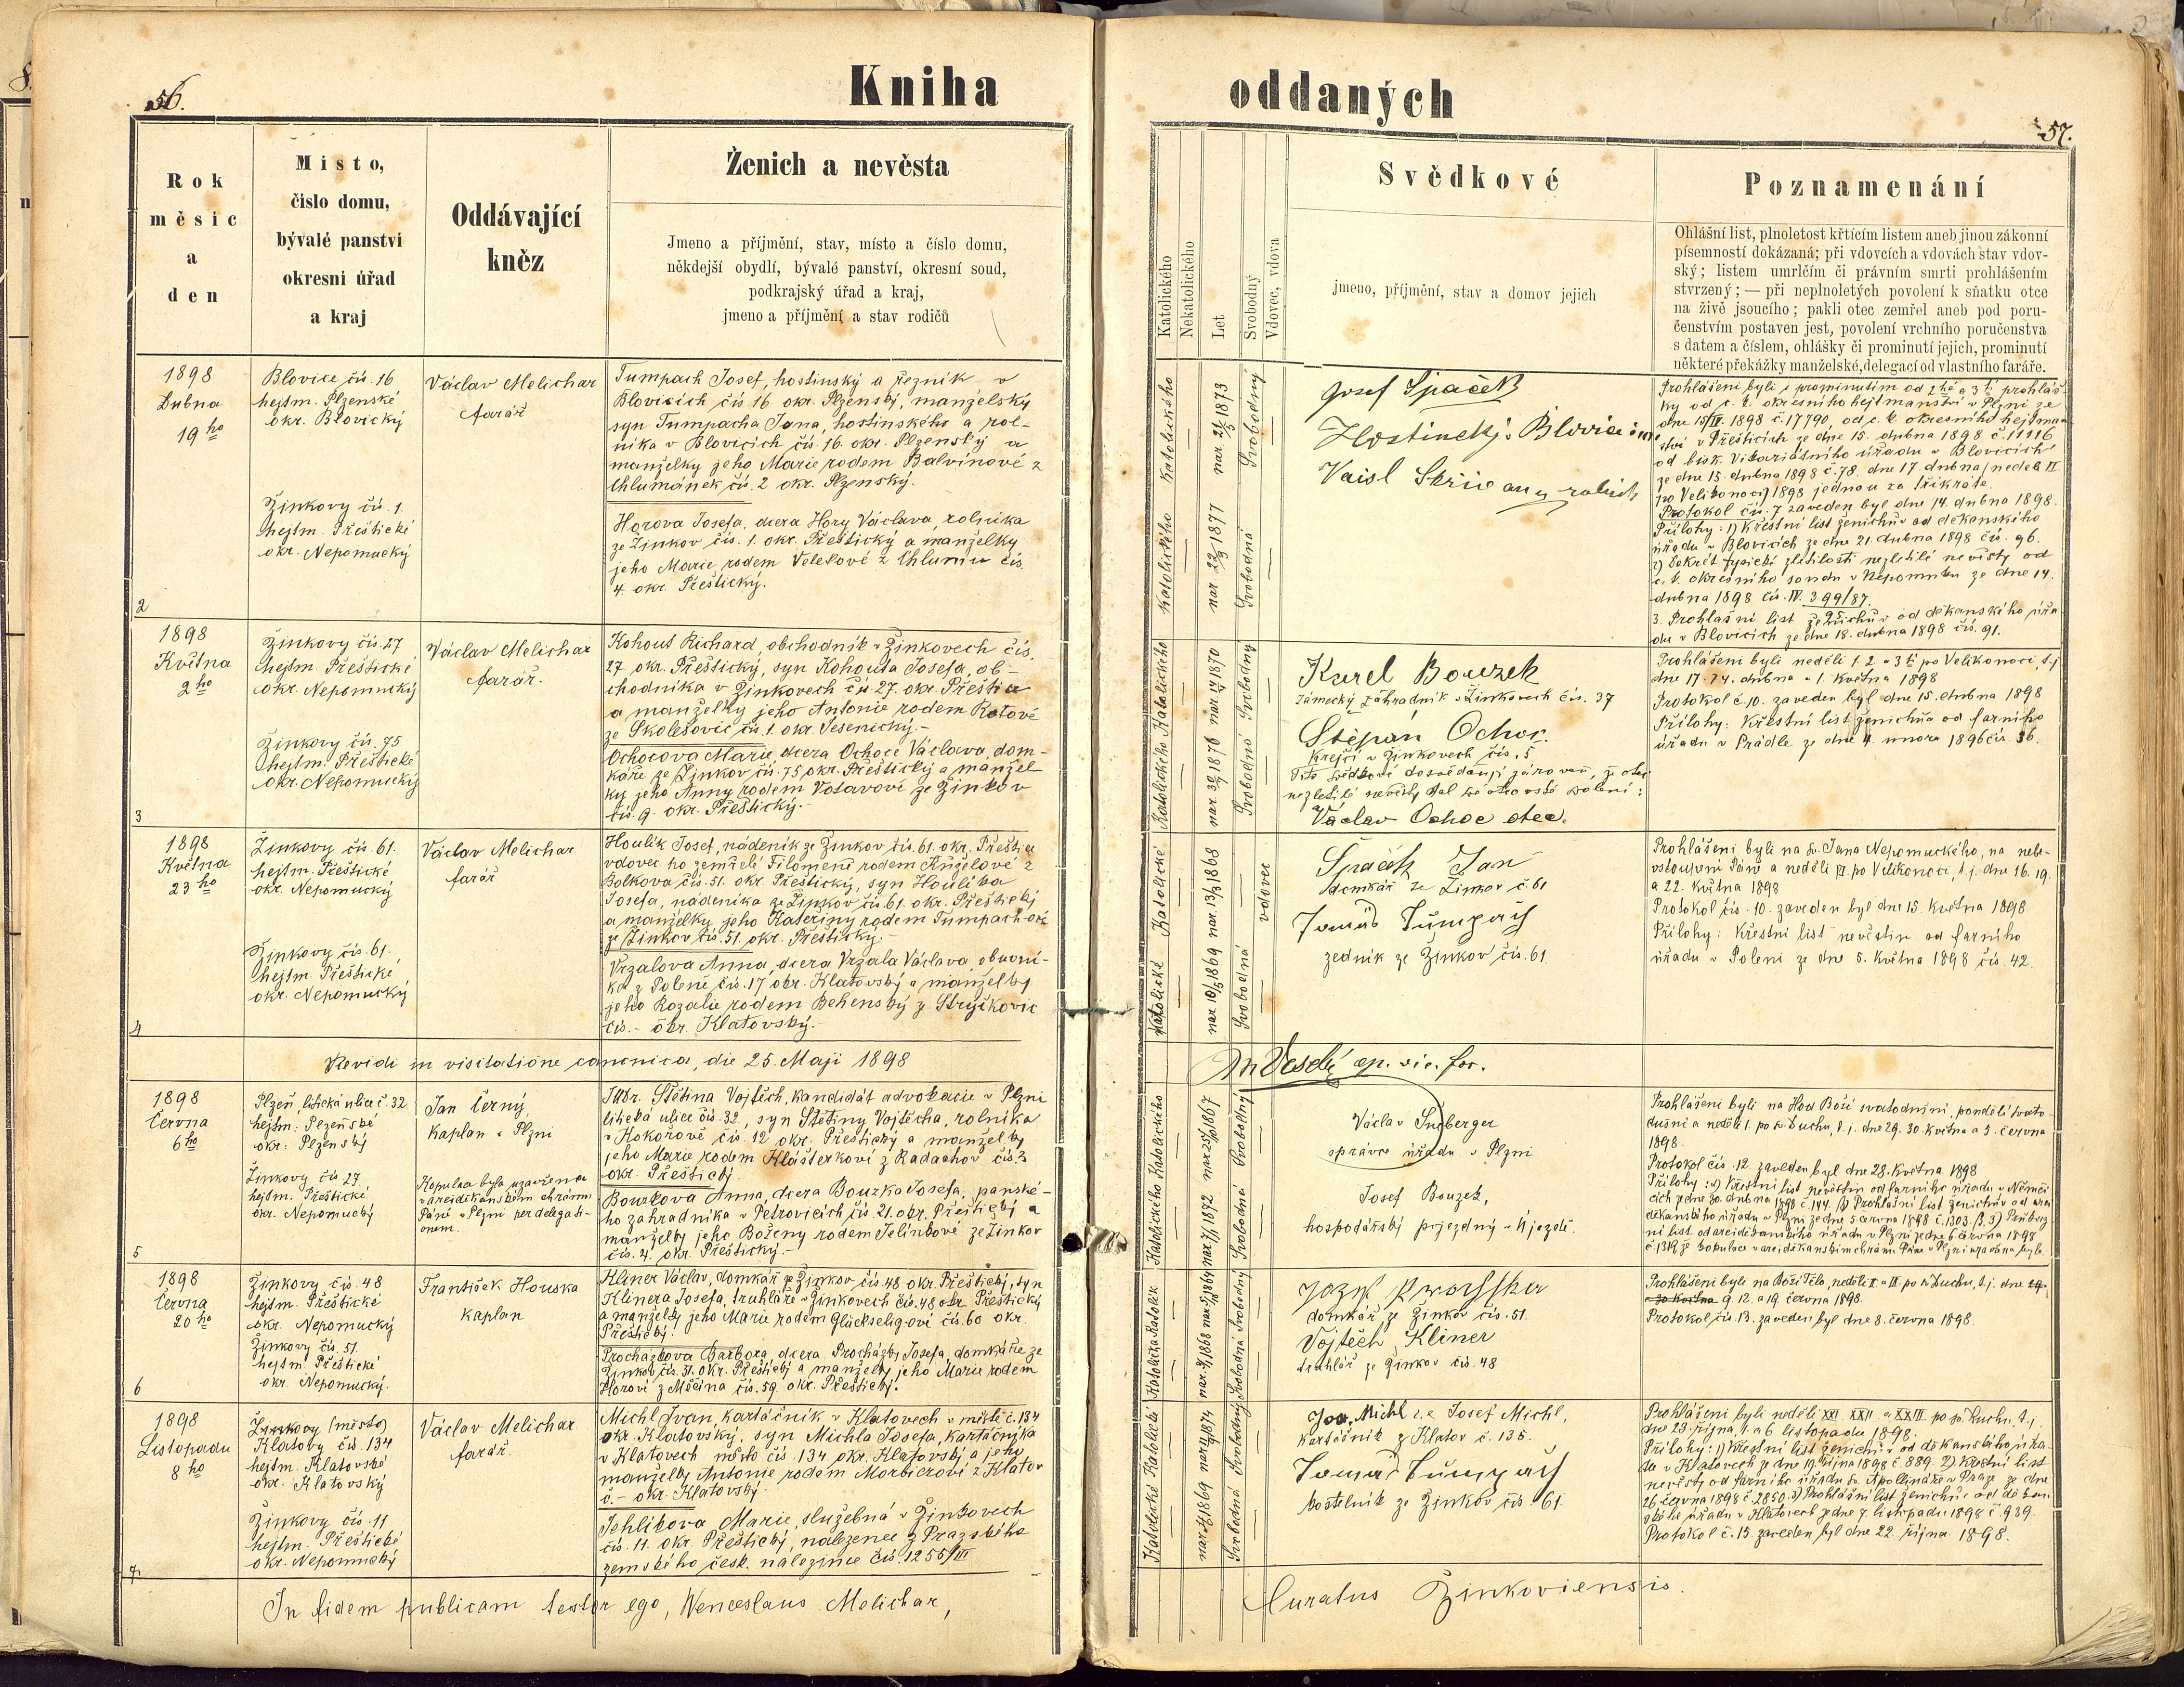 56.
Kniha
Rok
měsíc
a
den
Místo,
číslo domu,
bývalé panství
okresní úřad
a kraj
Oddávající
kněz
Ženich a nevěsta
Jmeno a příjmění, stav, místo a číslo domu,
někdejší obydlí, bývalé panství, okresní soud,
podkrajský úřad a kraj,
jmeno a příjmění a stav rodičů
1898
Dubna
19 ho
Blovice čís. 16
hejtm. Plzenské
okr. Blovický
Žinkovy čís. 1.
hejtm. Přeštické
okr. Nepomucký
Václav Melichar
farář
Tumpach Josef, hostinský a řezník v
Blovicích čís 16 okr. Plzenský, manželský
syn Tumpacha Jana, hostinského a rol-
níka v Blovicích čís. 16. okr. Plzenský a
manželky jeho Marie rodem Balvínové z
Chlumánek čís. 2 okr. Plzenský.
Horova Josefa, dcera Hory Václava, rolníka
ze Žinkov čís. 1. okr. Přeštický a manželky
jeho Marie rodem Velekové z Chlumu čís
4. okr. Přeštický.
2
1898
Května
2 ho
Žinkovy čís. 27
hejtm. Přeštické
okr. Nepomucký
Žinkovy čís. 75
hejtm. Přeštické
okr. Nepomucký
Václav Melichar
farář.
Kohout Richard, obchodník v Žinkovech čís.
27. okr. Přeštický, syn Kohouta Josefa, ob-
chodníka v Žinkovech čís 27. okr. Přeštic
a manželky jeho Antonie rodem Rotové
ze Skolešovic čís. 1. okr. Jesenický.-
Ochocova Marie dcera Ochoce Václava, dom-
káře ze Žinkov čís. 75 okr. Přeštický a manžel
ky jeho Anny rodem Votavové ze Žinkov
čís. 9. okr. Přeštický.-
3
1898
Května
23 ho
Žinkovy čís. 61.
hejtm. Přeštické
okr. Nepomucký
Žinkovy čís. 61.
hejtm. Přeštické
okr. Nepomucký
Václav Melichar
farář
Houlík Josef, nádeník ze Žinkov čís. 61. okr. Přeštic
vdovec po zemřelé Filomeně rodem Anželové z
Bolkova čís. 51. okr. Přeštický, syn Houlíka
Josefa, nádeníka ze Žinkov čís 61. okr. Přeštický
a manželky jeho Kateřiny rodem Tumpach-ové
ze Žinkov čís. 51. okr. Přeštický.-
Vrzalova Anna, dcera Vrzala Václava, obuvní-
ka z Poleně čís. 17 okr. Klatovský a manželky
jeho Rozalie rodem Behenský z Strýčkovic
čís. - okr. Klatovský.-
4
Revidi in visitatione canonica, die 25. Maji 1898
1898
Června
6 ho
Plzeň, litická ulice č. 32
hejtm: Plzeňské
okr: Plzenský
Žinkovy čís 27.
hejtm. Přeštické
okr. Nepomucký
Jan Černý,
Kaplan v Plzni
Kopulace byla uzavřena
v arciděkanském chrámu
Páně v Plzni per delegati-
onem.
JUDr. Štětina Vojtěch, kandidát advokacie v Plzni
litická ulice čís 32, syn Štětiny Vojtěcha, rolníka
v Kokořově čís 12 okr. Přeštický a manželky
jeho Marie rodem Klášterkoví z Radachov čís. 3
okr. Přeštický.
Bouzkova Anna, dcera Bouzka Josefa, panské-
ho zahradníka v Petrovicích čís 21. okr. Přeštický a
manželky jeho Boženy rodem Jelínkové ze Žinkov
čís. 4. okr. Přeštický.-
5
1898
Června
20 ho
Žinkovy čís. 48
hejtm. Přeštické
okr. Nepomucký
Žinkovy čís. 51.
hejtm. Přeštické
okr. Nepomucký.
František Houska
Kaplan
Kliner Václav, domkář ze Žinkov čís. 48 okr. Přeštický, syn
Klinera Josefa, truhláře v Žinkovech čís. 48 okr Přeštický
a manželky jeho Marie rodem Glückselig-ové čís. 60 okr.
Přeštický.
Procházkova Barbora, dcera Procházky Josefa, domkáře ze
Žinkov čís. 51. okr. Přeštický a manželky jeho Marie rodem
Horové z Měčína čís. 59. okr. Přeštický.
6
1898
Listopadu
8 ho
Žinkovy (město)
Klatovy čís. 134
hejtm. Klatovské
okr. Klatovský
Žinkovy čís. 11
hejtm. Přeštické
okr. Nepomucký
Václav Melichar
farář.
Michl Ivan, kartáčník v Klatovech v městě č. 134
okr. Klatovský, syn Michla Josefa, kartáčníka
v Klatovech město čís. 134. okr. Klatovský a jeho
manželky Antonie rodem Morbicrové z Klatov
č. - okr. Klatovský.
Jehlíkova Marie, služebná v Žinkovech
čís. 11. okr. Přeštický, nalezenec z Pražského
zemského česk. nalezince čís. 1255/III
7.
In fidem publicam testor ego, Wenceslaus Melichar,
oddaných
57.
Katolického
Nekatolického
Let
Svobodný
Vdovec, vdova
Svědkové
jmeno, příjmění, stav a domov jejich
Poznamenání
Ohlášní list, plnoletost křticím listem aneb jinou zákonní
písemností dokázaná; při vdovcích a vdovách stav vdov-
ský; listem umrlčím či právním smrti prohlášením
stvrzený; — při neplnoletých povolení k sňatku otce
na živě jsoucího; pakli otec zemřel aneb pod poru-
čenstvím postaven jest, povolení vrchního poručenstva
s datem a číslem, ohlášky či prominutí jejich, prominutí
některé překážky manželské, delegací od vlastního faráře.
Katolického
nar 21/3 1873
Svobodný
Katolického
nar 22/3 1877
Svobodná
Josef Špaček
Hostinský: Blovicích
Vaisl Střížovany rolník
Prohlášeni byli s prominutím od 2hé a 3tí prohláš-
ky od c. k. okresního hejtmanství v Plzni ze
dne 15/IV. 1898 č. 17790, od c. k. okresního hejtman
ství v Přešticích ze dne 15. dubna 1898 č. 11116
od bisk. Vikariátního úřadu v Blovicích
ze dne 15. dubna 1898 č. 78. dne 17. dubna (neděle II
po Velikonoci) 1898 jednou za třikráte.
Protokol čís. 7 zaveden byl dne 14. dubna 1898.
Přílohy: 1) Křestní list ženichův od děkanského
úřadu v Blovicích ze dne 21. dubna 1898 čís. 96.
2) Dekrét fysické zletilosti nezletilé nevěsty od
c. k. okresního soudu v Nepomuku ze dne 14.
dubna 1898 čís. IV. 399/87.
3. Prohlášní list ženichův od děkanského úřa
du v Blovicích ze dne 18. dubna 1898 čís. 91.
Katolického
1870
Svobodný
Katolického
1876
Svobodná
Karel Bouzek
zámecký zahradník v Žinkovech čís. 37
Štěpán Ochoc.
Krejčí v Žinkovech čís. 5
Tito svědkové dosvědčují zároveň, že otec
nezletilé nevěsty dal své otcovské svolení:
Václav Ochoc otec.
Prohlášeni byli neděli 1. 2. a 3tí po Velikonoci, t. j
dne 17. 24. dubna a 1. května 1898
Protokol č 10. zaveden byl dne 15. dubna 1898
Přílohy: Křestní list ženichův od farního
úřadu v Prádle ze dne 4. února 1896 čís. 36.
Katolické
nar. 13/3 1868
vdovec
Katolické
nar 10/5 1869
Svobodná
Špaček Jan
domkář ze Žinkov č. 61
Tomáš Tumpach
zedník ze Žinkov čís. 61.
Prohlášeni byli na sv. Jana Nepomuckého, na nebe-
vstoupení Páně a neděli VI. po Velikonoci, t. j. dne 16. 19.
a 22. května 1898
Protokol čís. 10. zaveden byl dne 15. Května 1898
Přílohy: Křestní list nevěstin od farního
úřadu v Poleni ze dne 5. května 1898 čís. 42.
An Veselý ep. vic. for.
Katolického
nar 25/10 1867
Svobodný
Katolického
nar 7/1 1872
Svobodná
Václav
správce úřadu v Plzni
Josef Bouzek,
hospodářský pojezdný v Újezdě.
Prohlášeni byli na Hod Boží svatodušní, pondělí svato-
dušní a neděli 1. po sv. Duchu, t. j. dne 29. 30. května a 5. června
1898.
Protokol čís. 12. zaveden byl dne 28. května 1898
Přílohy: 1) Křestní list nevěstin od farního úřadu v Němči
cích ze dne 30. dubna 1898 č. 144. 2) Prohlášní list ženichův od arci
děkanského úřadu v Plzni ze dne 5 června 1898 č. 1303. 3)
ní list od arciděkanského úřadu v Plzni ze dne 6 června 1898
č. 1319 že kopulace v arciděkanském chrámu Páně v Plzni uzavřena byla.
Katolík
1864
Svobodný
Katolička
1868
Svobodná
Jozef Proháska
domkář ze Žinkov čís. 51.
Vojtěch Kliner
truhlář ze Žinkov čís. 48
Prohlášeni byli na Boží Tělo, neděli II a III. po sv. Duchu, t. j. dne 29.
30 května 9. 12. a 19. června 1898.
Protokol čís. 13. zaveden byl dne 8. června 1898.
Katolické
1874
Svobodný
Katolické
1869
Svobodná
Jos. Michl i. e. Josef Michl,
kartáčník z Klatov č. 135.
Tomáš Tumpach
kostelník ze Žinkov čís. 61.
Prohlášeni byli neděli XXI. XXII a XXIII. po sv. Duchu, t. j.
dne 23. října, 1. a 6 listopadu 1898.
Přílohy: 1) Křestní list ženichův od děkanského úřa-
du v Klatovech ze dne 19. října 1898 č. 889. 2) Křestní list
nevěsty od farního úřadu sv. Apollináře v Praze ze dne
26 června 1898 č. 2850. 3) Prohlášní list ženichův od děkan
ského úřadu v Klatovech ze dne 7. listopadu 1898 č. 939.
Protokol č. 15. zaveden byl dne 22. října 1898.
Curatus Žinkoviensis.